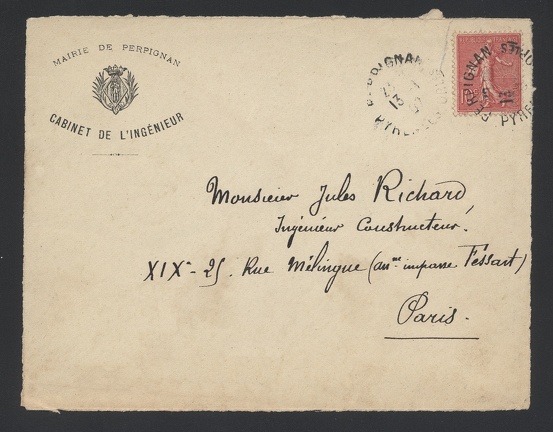 MAIRIE DE PERPIGNAN
CABINET DE L'INGÉNIEUR
PERPIGNAN
PERPIGNAN
Monsieur Jules Richard
Ingénieur Constructeur.
XIXe - 25. Rue Mélingue (anne impasse Fessart)
Paris.